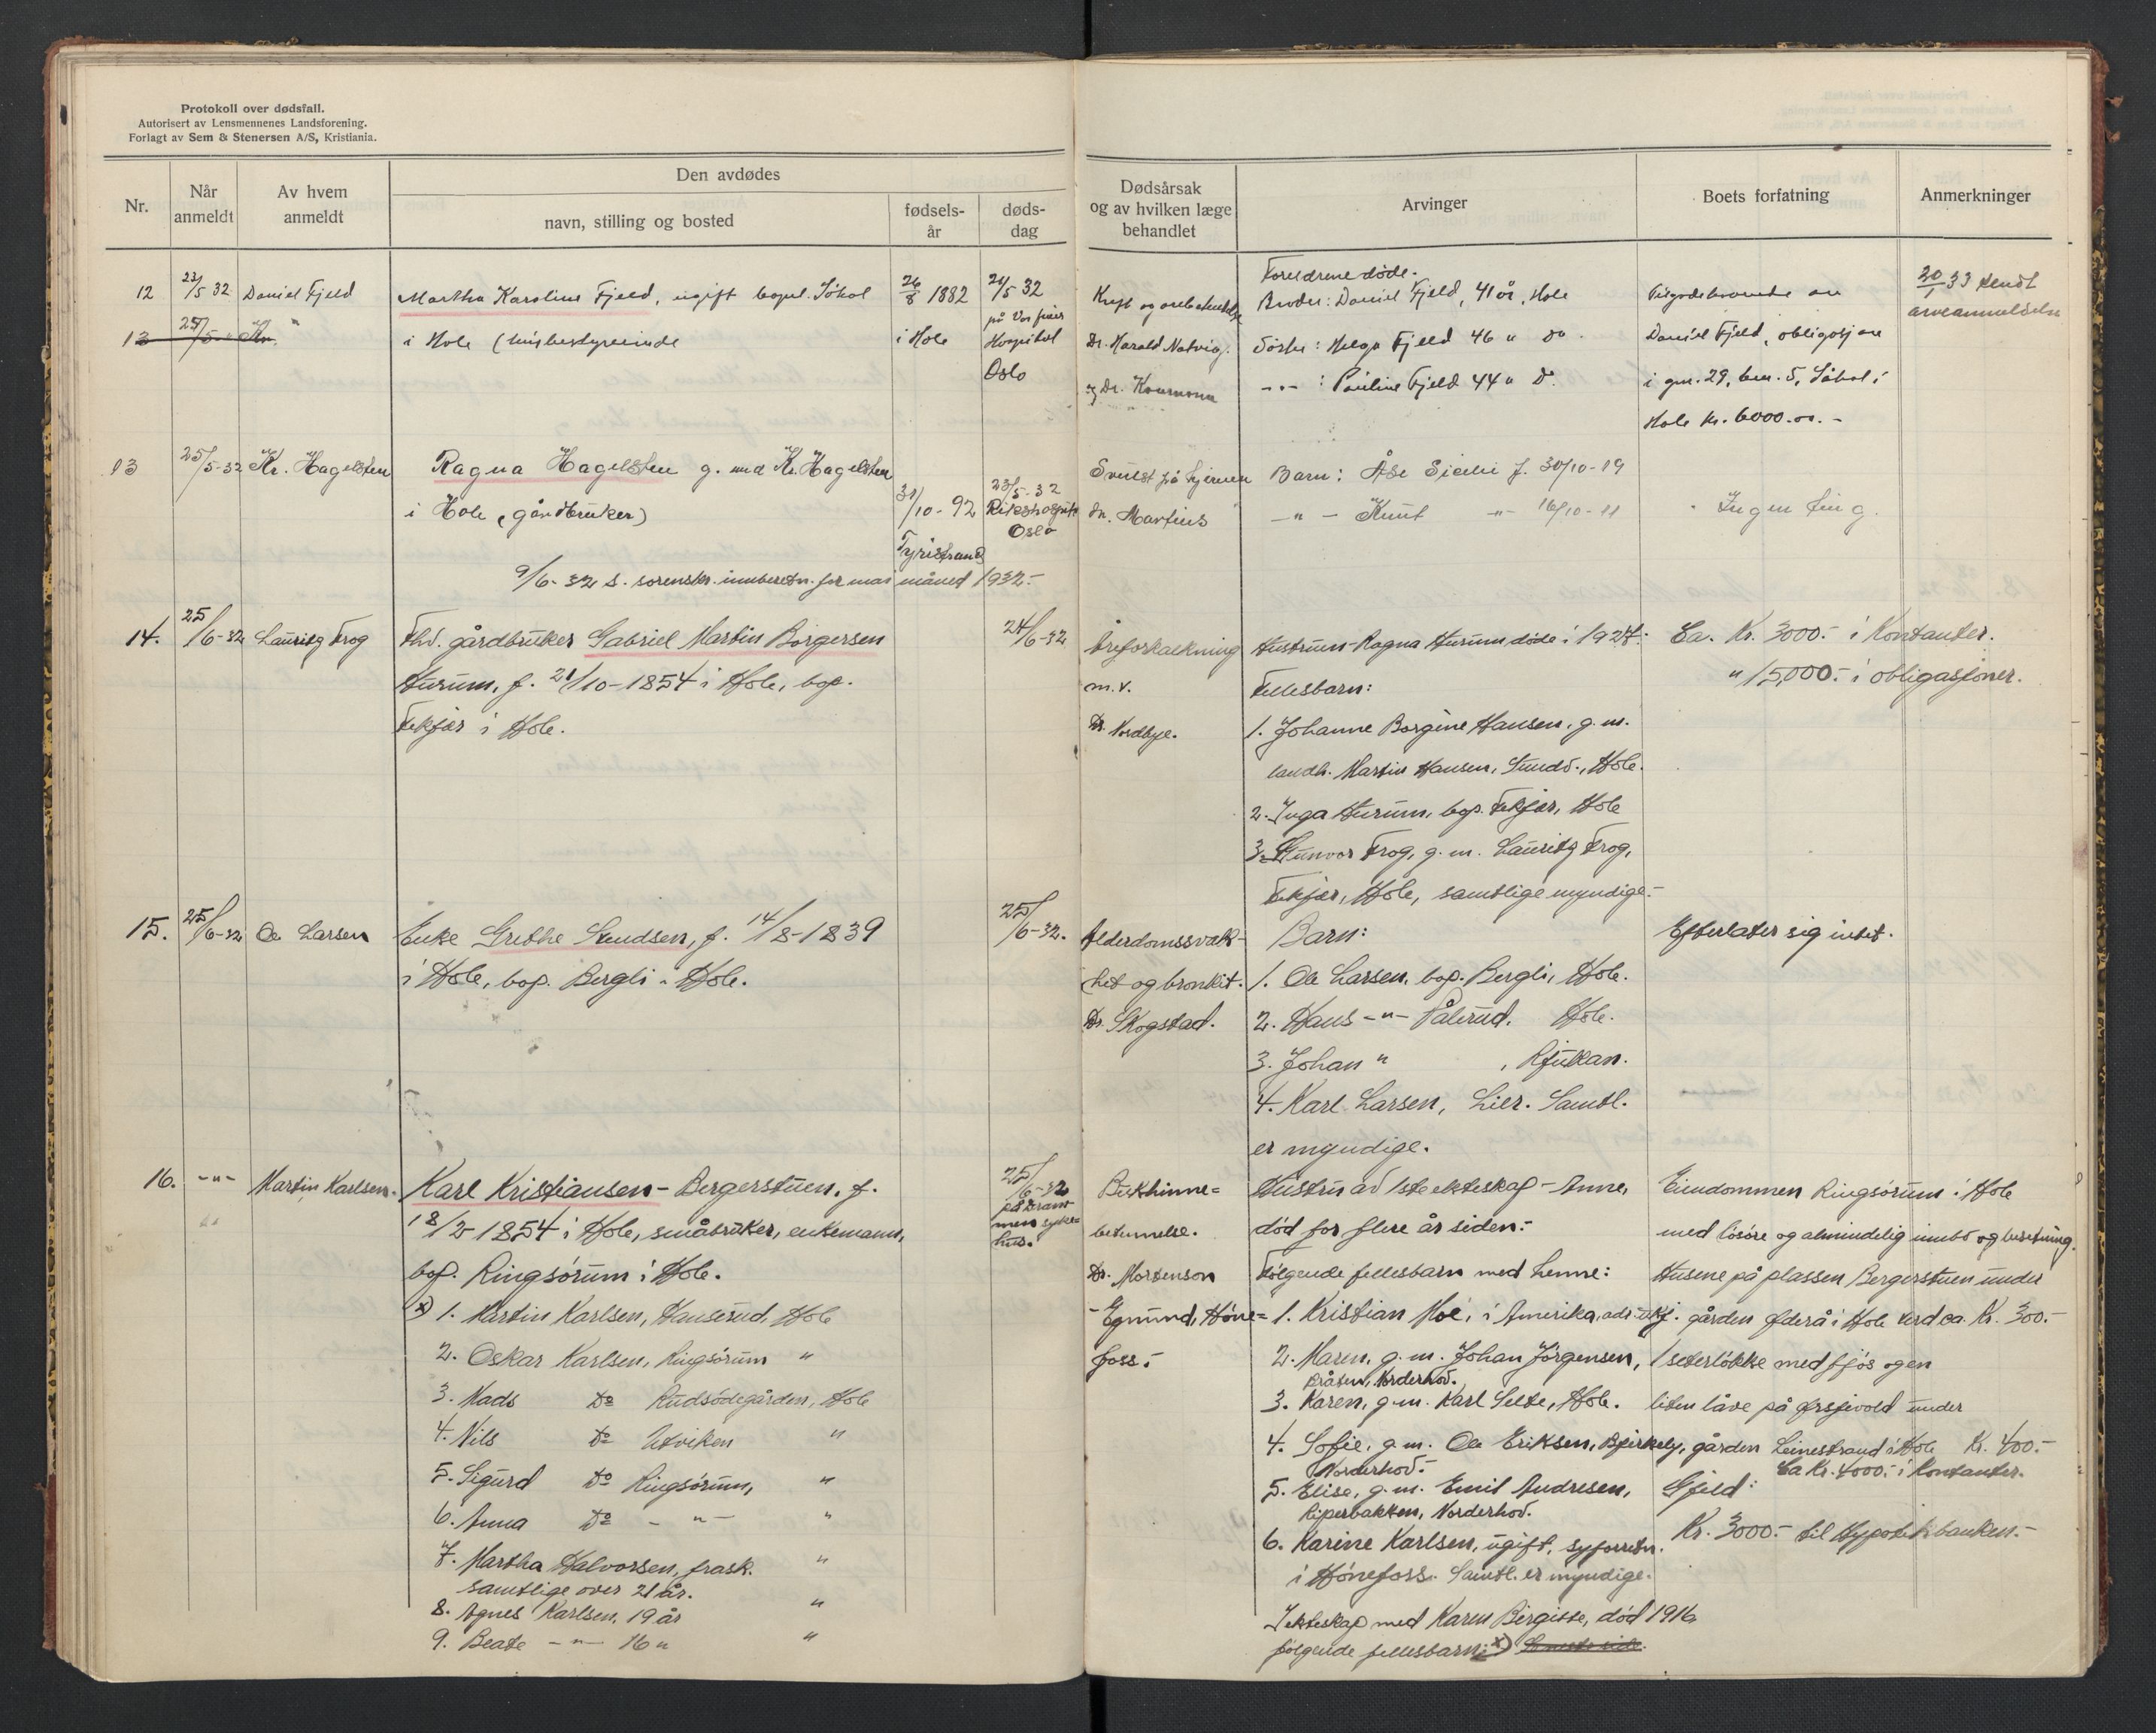 Protokoll over dødsfall.
Autorisert av Lensmennenes Landsforening.
Forlagt av Sem & Stenersen A/S, Kristiania.
Nr.
Når anmeldt
Av hvem anmeldt
Den avdødes
navn, stilling og bosted
fødsels-år
døds-dag
Dødsårsak og av hvilken læge behandlet
Arvinger
Boets forfatning
Anmerkninger
12 23/5 32 Daniel Fjeld Martha Karoline Fjeld, ugift bopel. Söhol 26/8 1882 24/5 32
13 25/5 i Hole (husbestyrerinde i Hole på Vor frues Hospital
Oslo
Foreldrene døde.
Kreft og Broder: Daniel Fjeld, 41 år, Hole
Dr. Harald Natvig. Söster: Helga Fjeld 46 " do.
og Dr. -"- : Pauline Fjeld 44 " Do.
an
Daniel Fjeld, obligasjon
i gnr. 29, bnr. 5, Söhol i
Hole kr. 6000.00.-
20/1 33 sendt
arveanmeldelse
13 25/5-32 Kr. Hagelsteen Ragna Hagelsteen g. med Kr. Hagelsteen 23/5-32
i Hole (gårdbruker) 31/10-92 Rikshospit. Oslo
Tyristrand
9/6-32 s. sorenskr. innberetn. for mai måned 1932.-
Svulst på hjernen Barn: Åse f. 30/10-19
dr. Martius -"- Knut -"- 16/10-11
Ingen ting.
14. 25/6-32 Lauritz Frog Fhv. gårdbruker Gabriel Martin Borgersen 24/6-32
Hurum, f. 21/10-1854 i Hole, bop.
Fekjær i Hole.
Åreforkalkning Hustruen - Ragna Hurum døde i 1927.
m.v. Fellesbarn:
Dr. Nordbye. 1. Johanne Borgine Hansen, g.m.
landh. Martin Hansen, Sundv., Hole.
2. Inga Hurum, bop. Fekjær, Hole
3. Gunvor Frog, g.m. Lauritz Frog,
Fekjær, Hole, samtlige myndige.-
Ca. Kr. 3000.- i Kontanter.
" 15,000.- i obligasjoner.
15. 25/6-32 Ole Larsen Enke Grethe Knudsen, f. 14/8-1839 25/6-32.
i Hole, bop. Bergli i Hole.
Alderdomssvak- Barn:
het og bronkit. 1. Ole Larsen, bop. Bergli, Hole.
Dr. Skogstad. 2. Hans -"- Pålerud, Hole.
3. Johan " , Rjukan.
4. Karl Larsen, Lier. Samtl.
er myndige.
Efterlater sig intet.
16. -"- Martin Karlsen. Karl Kristiansen - Bergerstuen, f. 25/6-32
18/2-1854 i Hole, småbruker, enkemann, på Drammen sykehus.
bop. Ringsörum i Hole.
x) 1. Martin Karlsen, Hauserud, Hole
2. Oskar Karlsen, Ringsörum "
3. Mads Do Rudsödegården, Hole
4. Nils Do Utviken "
5. Sigurd Do Ringsörum, "
6. Anna Do - " - "
7. Martha Halvorsen, frask. "
samtlige over 21 år.
8. Agnes Karlsen, 19 år "
9. Beate -"- 16 " "
Bukhinne= Hustru av 1ste ekteskap - Anne,
betennelse. død for flere år siden.-
Dr. Mortenson Følgende fellesbarn med henne:
- Egmund, Höne= 1. Kristian Moe, i Amerika, adr. ukj.
foss.- 2. Maren, g.m. Johan Jörgensen,
Bråten, Norderhov.
3. Karen, g.m. Karl Selte, Hole.
4. Sofie, g.m. Ole Eriksen, Bjerkely,
Norderhov.-
5. Elise, g.m. Emil Andresen,
Riperbakken, Norderhov.
6. Karine Karlsen, ugift, syforretn.
i Hönefoss. Samtl. er myndige.
I ekteskap med Karen Birgitte, død 1916
følgende fellesbarn: x) Se neste side.
Eiendommen Ringsörum i Hole
med lösöre og almindelig innbo og besetning.
Husene på plassen Bergerstuen under
gården i Hole verd ca. Kr. 300.-
1 seterlökke med fjös og en
liten låve på under
gården Leinestrand i Hole Kr. 400.-
Ca Kr. 4000.- i Kontanter.
Gjeld:
Kr. 3000.- til Hypotekbanken.-